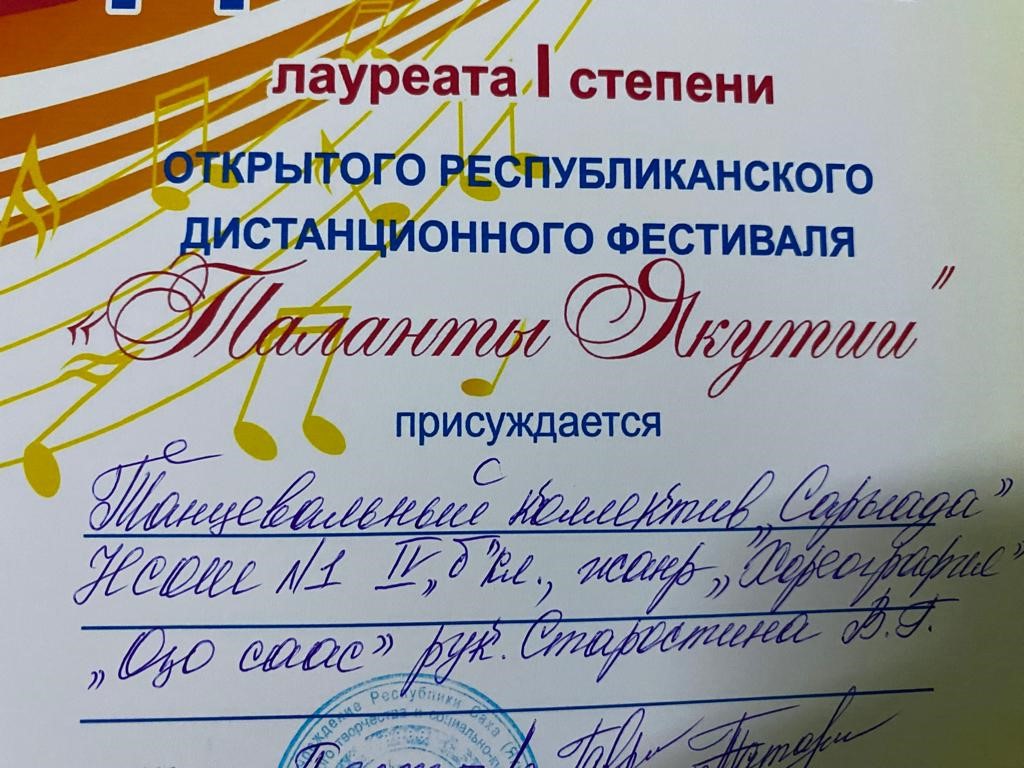 лауреата I степени
ОТКРЫТОГО РЕСПУБЛИКАНСКОГО
ДИСТАНЦИОННОГО ФЕСТИВАЛЯ
«Таланты Якутии"
присуждается
Танцевальный коллектив „Сарыада"
НСОШ №1 IV „б" кл., жанр „Хореография"
„Оҕо саас" рук. Старостина В.Г.
Республики Саха
творчества и социально-